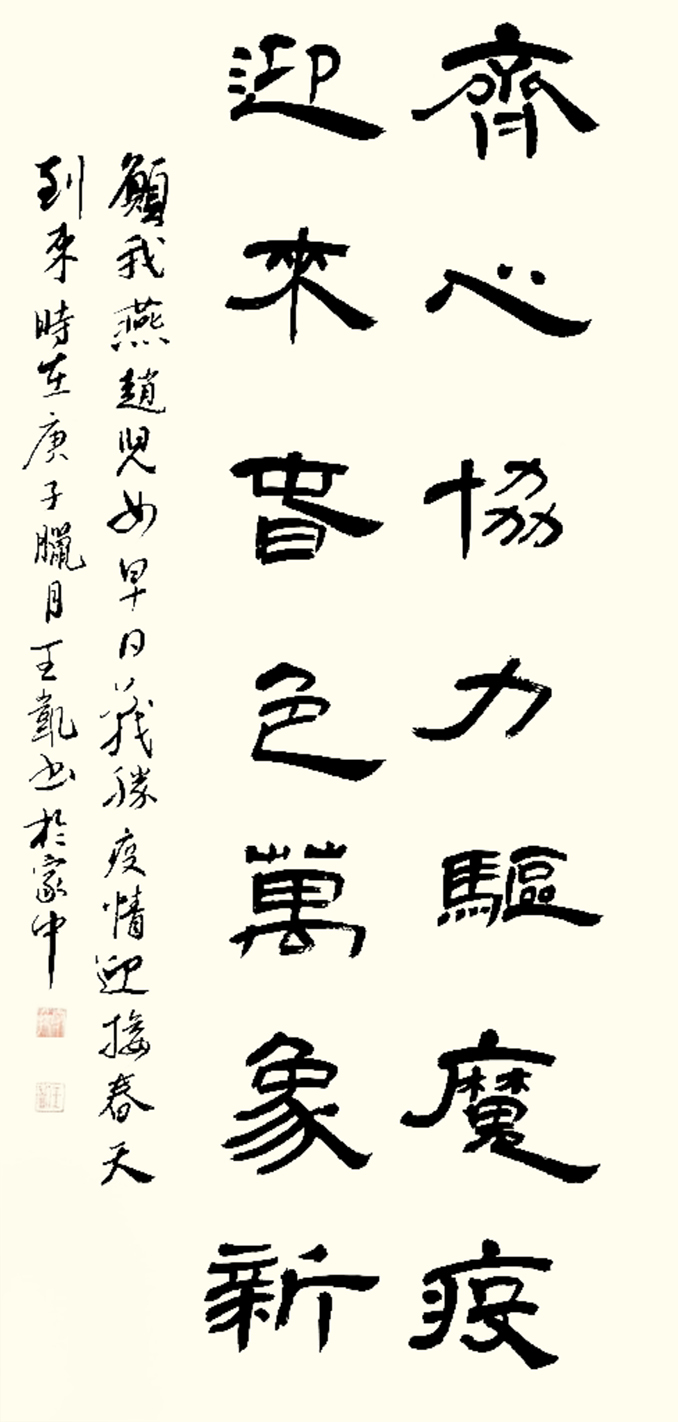 齊心協力驅魔疫
迎來春色萬象新
願我燕趙兒女早日戰勝疫情迎接春天
到來時在庚子臘月王凱書於家中